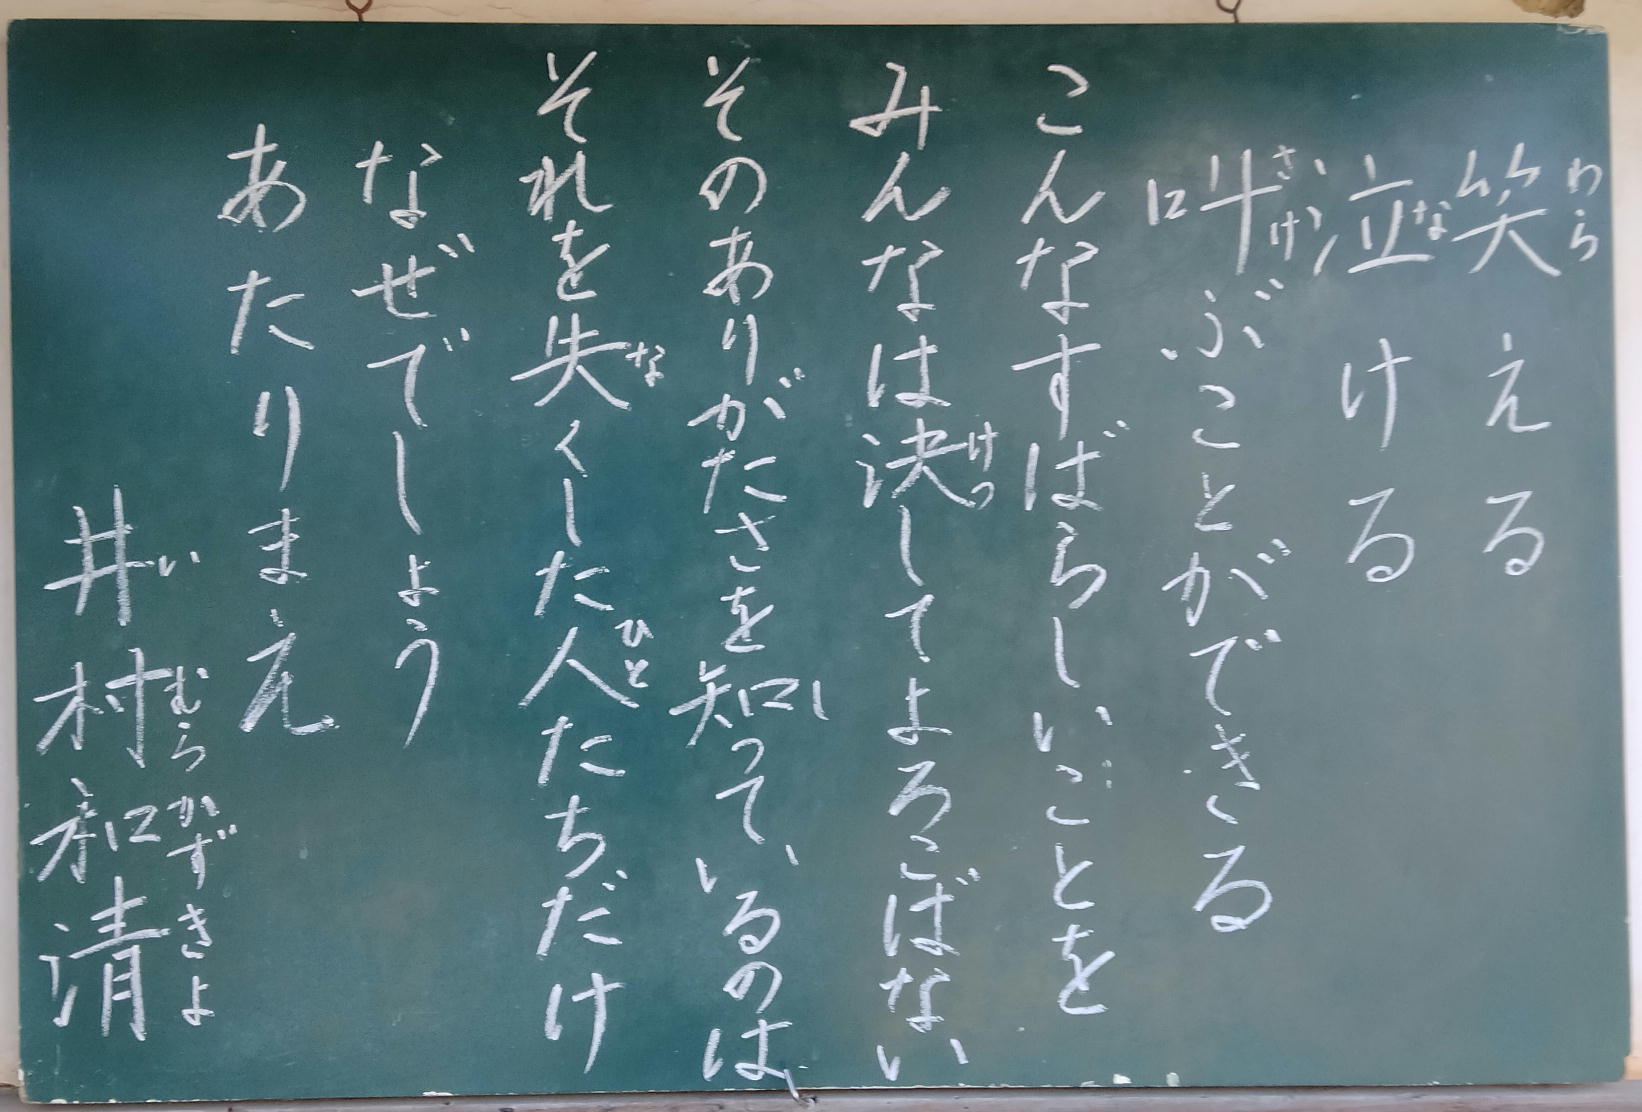 笑える
泣ける
叫ぶことができる
こんなすばらしいことを
みんなは決してよろこばない
そのありがたさを知っているのは
それを失くした人たちだけ
なぜでしょう
あたりまえ
井村和清
わら
な
さけ
けっ
し
な
ひと
い
むら
かず
きよ